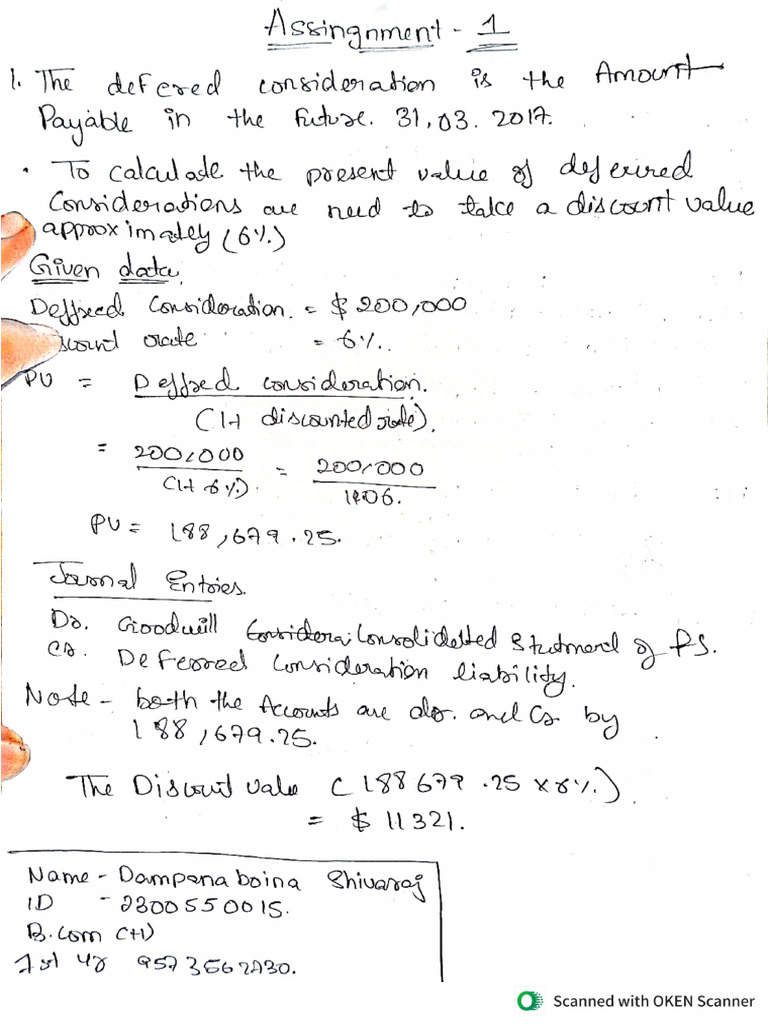 Assingnment - 1
1. The defered consideration is the Amount
Payable in the Future. 31.03.2017.
• To calculate the present value of deferred
Considerations are need to take a discount value
approximately (6%)
Given data
Deffred Consideration. = $ 200,000
scount rate = 6%.
PV = Deffred consideration.
(1+ discounted rate).
= 200,000 = 200,000
(1+6%) 1.06.
PV = 188,679.25.
Journal Entries.
Dr. Goodwill Consolidatted Statment of PS.
Cr. Deferred Consideration liability.
Note - both the Accounts are dr. and Cr by
188,679.25.
The Discout value (188679.25 x 6%.)
= $ 11321.
Name - Dampana boina Shivaraj
ID - 2300550015.
B.Com (H)
1st yr
Scanned with OKEN Scanner